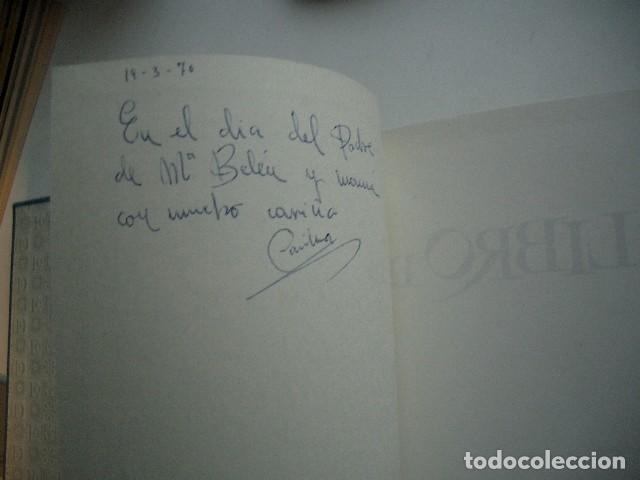 19-3-70
En el dia del Padre
de Mª Belén y mamá
con mucho cariño
LIBRO
todocoleccion.net